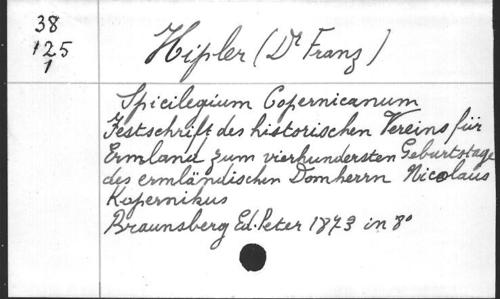 38
125
1
Hipler (Dr Franz)
Spicilegium Copernicanum
Festschrift des historischen Vereins für
Ermland zum vierhundersten Geburtstage
des ermländischen Domherrn Nicolaus
Kopernikus
Braunsberg Ed. Peter 1873 in 8°